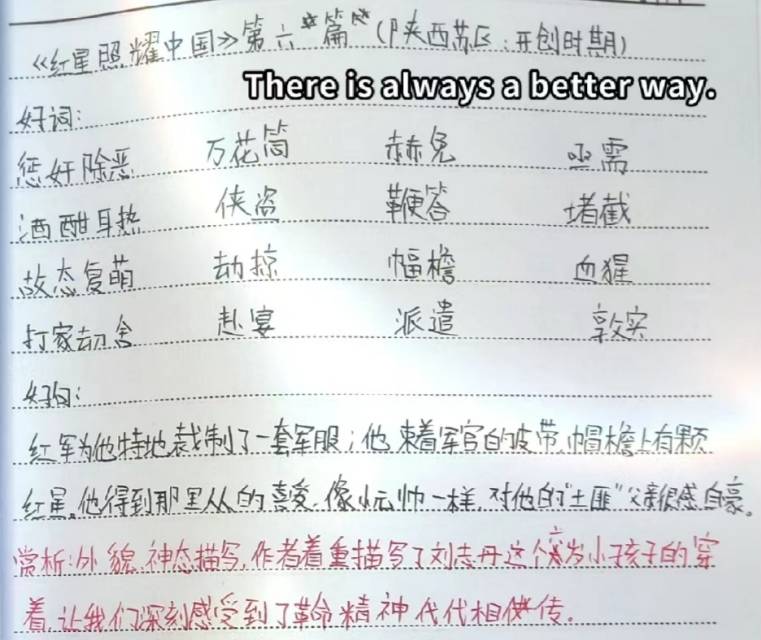 《红星照耀中国》第六篇（陕西苏区：开创时期）
There is always a better way.
好词：
惩奸除恶 万花筒 赫免 亟需
酒酣耳热 侠盗 鞭笞 堵截
故态复萌 劫掠 帽檐 血腥
打家劫舍 赴宴 派遣 敦实
好句：
红军为他特地裁制了一套军服；他束着军官的皮带，帽檐上有颗
红星。他得到那里众人的喜爱，像小元帅一样，对他的“土匪”父亲很感自豪。
赏析：外貌、神态描写，作者着重描写了刘志丹这个六岁小孩子的穿
着，让我们深刻感受到了革命精神代代相传。